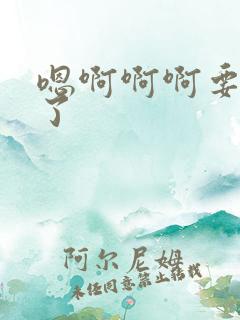 嗯啊啊啊要
了
阿尔尼姆
未经同意禁止转载